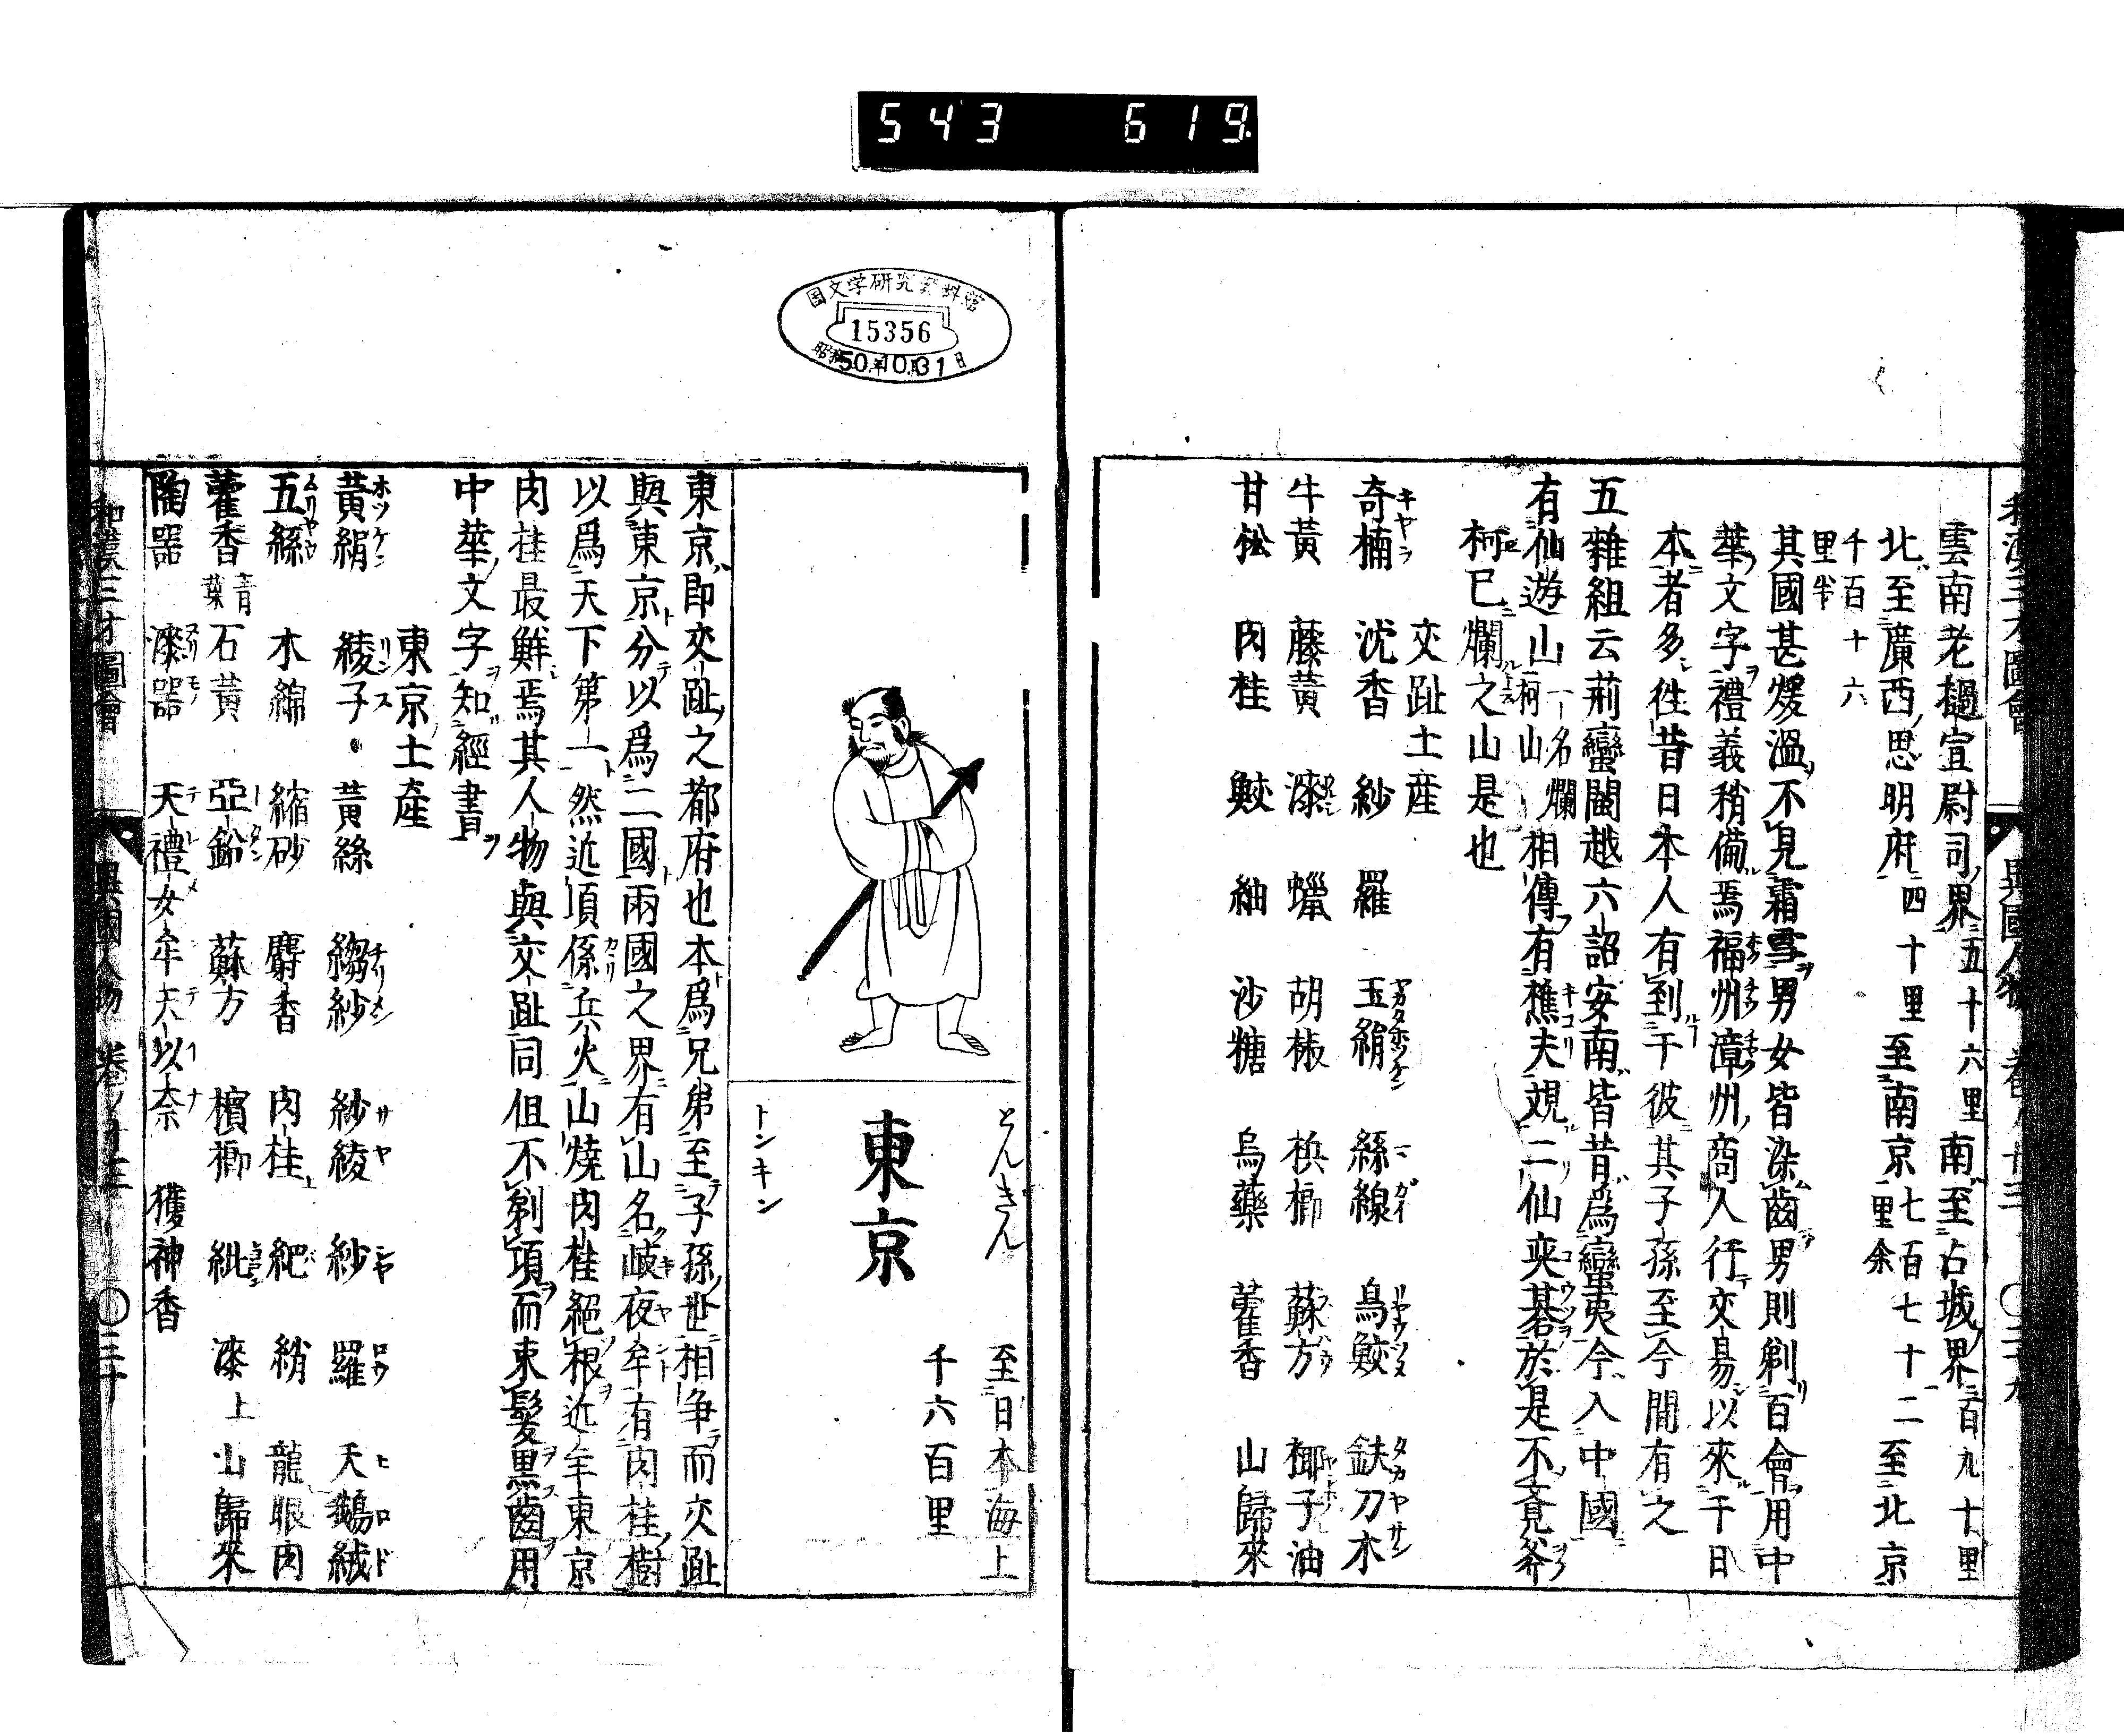 543 619
和漢三才圖會 異國人物 卷ノ十三 ○二十九
雲南老撾宣尉司界五十六里南至占城界二百九十里
北至廣西思明府四十里至南京七百七十二里余至北京
千百十六里半
其國甚煖溫不見霜雪男女皆染齒男則剃百會用中
華文字禮義稍備焉福州漳州商人行交易以來于日
本者多徃昔日本人有到于彼其子孫至今間有之
五雜組云荊蠻閩越六詔安南皆昔爲蠻夷今入中國
有仙遊山一名爛柯山相傳有樵夫覌二仙奕碁於是不覺斧
柯已爛之山是也
交趾土産
奇楠 沈香 紗 羅 玉絹 絲線 鳥鮫 鈇刀木
牛黃 藤黃 漆 蠟 胡椒 梹榔 蘇方 椰子油
甘松 肉桂 鮫 紬 沙糖 烏藥 藿香 山歸來
国文学研究資料館
15356
昭和50年10月31日
とんきん
東京
トンキン
至日本海上
千六百里
東京即交趾之都府也本爲兄弟至子孫世相爭而交趾
與東京分以爲二國兩國之界有山名岐夜牟有肉桂樹
以爲天下第一然近頃係兵火山燒肉桂絕根近年東京
肉桂最鮮焉其人物與交趾同但不剃項而束髮黑齒用
中華文字知經書
東京土産
黃絹 綾子 黃絲 縐紗 紗綾 紗 羅 天鵝絨
五絲 木綿 縮砂 麝香 肉桂上 絶 綃 龍眼肉
藿香青葉 石黃 亞鉛 蘇方 檳榔 紕 漆上 山歸來
陶器 漆器 天禮女牟天以奈 獲神香
和漢三才圖會 異國人物 卷ノ十三 ○三十